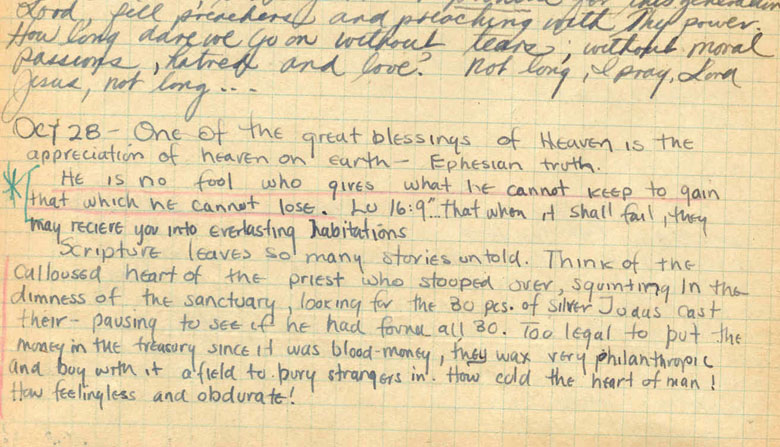 Lord, fill preachers and preaching with Thy power.
How long dare we go on without tears, without moral
passions, hatred and love? Not long, I pray, Lord
Jesus, not long...
Oct 28 - One of the great blessings of Heaven is the
appreciation of heaven on earth - Ephesian truth.
He is no fool who gives what he cannot keep to gain
that which he cannot lose. Lu 16:9 "That when it shall fail, they
may recieve you into everlasting habitations
Scripture leaves so many stories untold. Think of the
calloused heart of the priest who stooped over, squinting in the
dimness of the sanctuary, looking for the 30 pcs. of silver Judas cast
their - pausing to see if he had found all 30. Too legal to put the
money in the treasury since it was blood-money, they wax very philanthropic
and buy with it a field to bury strangers in. How cold the heart of man!
How feelingless and obdurate!